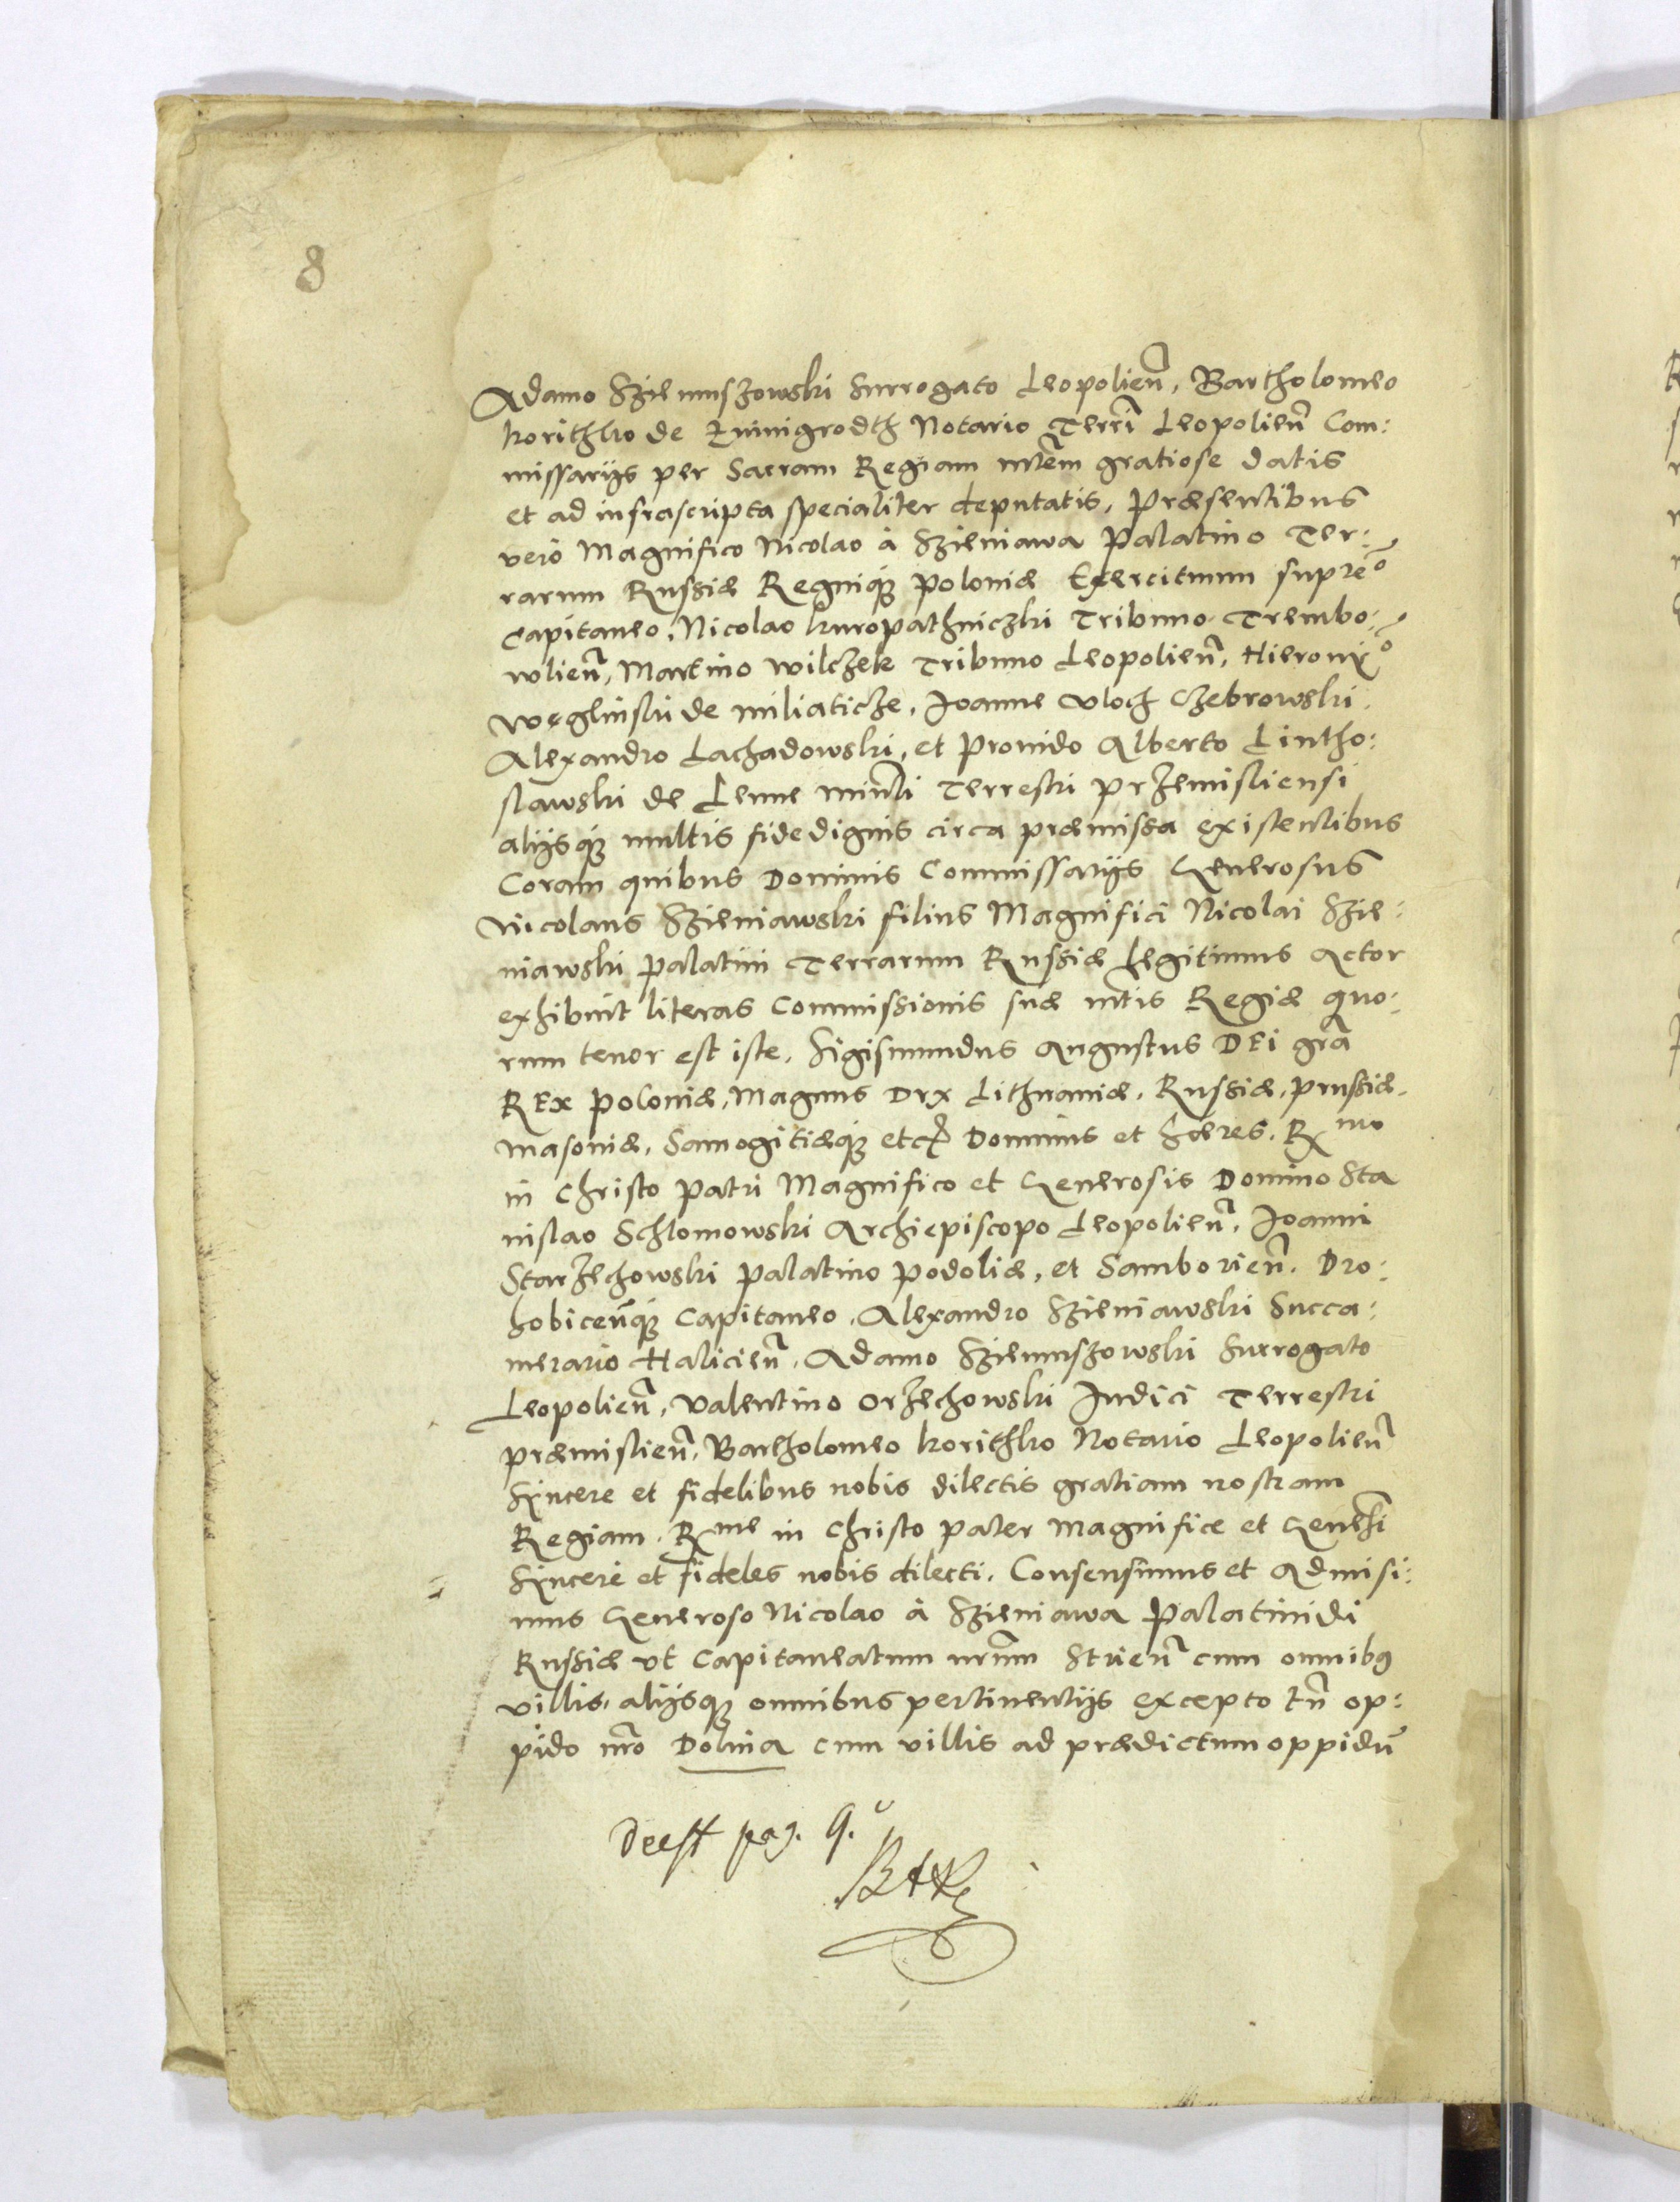 8
Adamo Szienuszowski Surrogato Leopolieñ, Bartholomeo
korithko de Zminigrodth Notario Terri Leopolieñ Com:
missarijs per Sacram Regiam mtem gratiose datis
et ad infrascripta specialiter deputatis, Præsentibus
vero Magnifico Nicolao à Szieniawa Palatino Ter:
rarum Russiæ Regniq; Poloniæ Exercituum supreo
Capitaneo, Nicolao kuropathniczki Tribuno Trembo:
wlieñ, Martino wilczek Tribuno Leopolieñ, Hieronyo
Węglinski de miliaticze, Joanne vloch Czebrowski,
Alexandro Lachadowski, et Prouido Alberto Lintho:
slawski de Lenne minli Terrestri Przemisliensi
alijsq; multis fidedignis circa præmissa existentibus
Coram quibus Dominis Commissarijs Generosus
Nicolaus Szieniawski filius Magnifici Nicolai Szie:
niawski Palatini Terrarum Russiæ Legitimus Actor
exhibuit literas Commissionis suæ mtis Regiæ quo:
rum tenor est iste. Sigismundus Augustus DEi gra
REx Poloniæ, Magnus Dux Lithuaniæ, Russiæ, Prussiæ
Masouiæ, Samogitiæq; etc Dominus et hæres. Rmo
in Christo Patri Magnifico et Generosis Domino Sta
nislao Schlomowski Archiepiscopo Leopolieñ, Joanni
Starzechowski Palatino Podoliæ, et Samborieñ. Dro:
hobiceñq; Capitaneo, Alexandro Szieniawski Succa:
merario Halicieñ, Adamo Szienuszowski Surrogato
Leopolieñ, Valentino Orzechowski Judici Terrestri
Præmislieñ, Bartholomeo korithko Notario Leopolieñ
Syncere et fidelibus nobis dilectis gratiam nostram
Regiam. Rme in Christo Pater Magnifice et Genesi
Syncere et fideles nobis dilecti. Consensimus et Admisi:
mus Generoso Nicolao à Szieniawa Palatinidi
Russiæ vt Capitaneatum nrum Strieñ cum omnibq
villis, alijsq; omnibus pertinentijs excepto tñ op:
pido nro Dolina cum villis ad prædictum oppidū
Deest pag. 9.